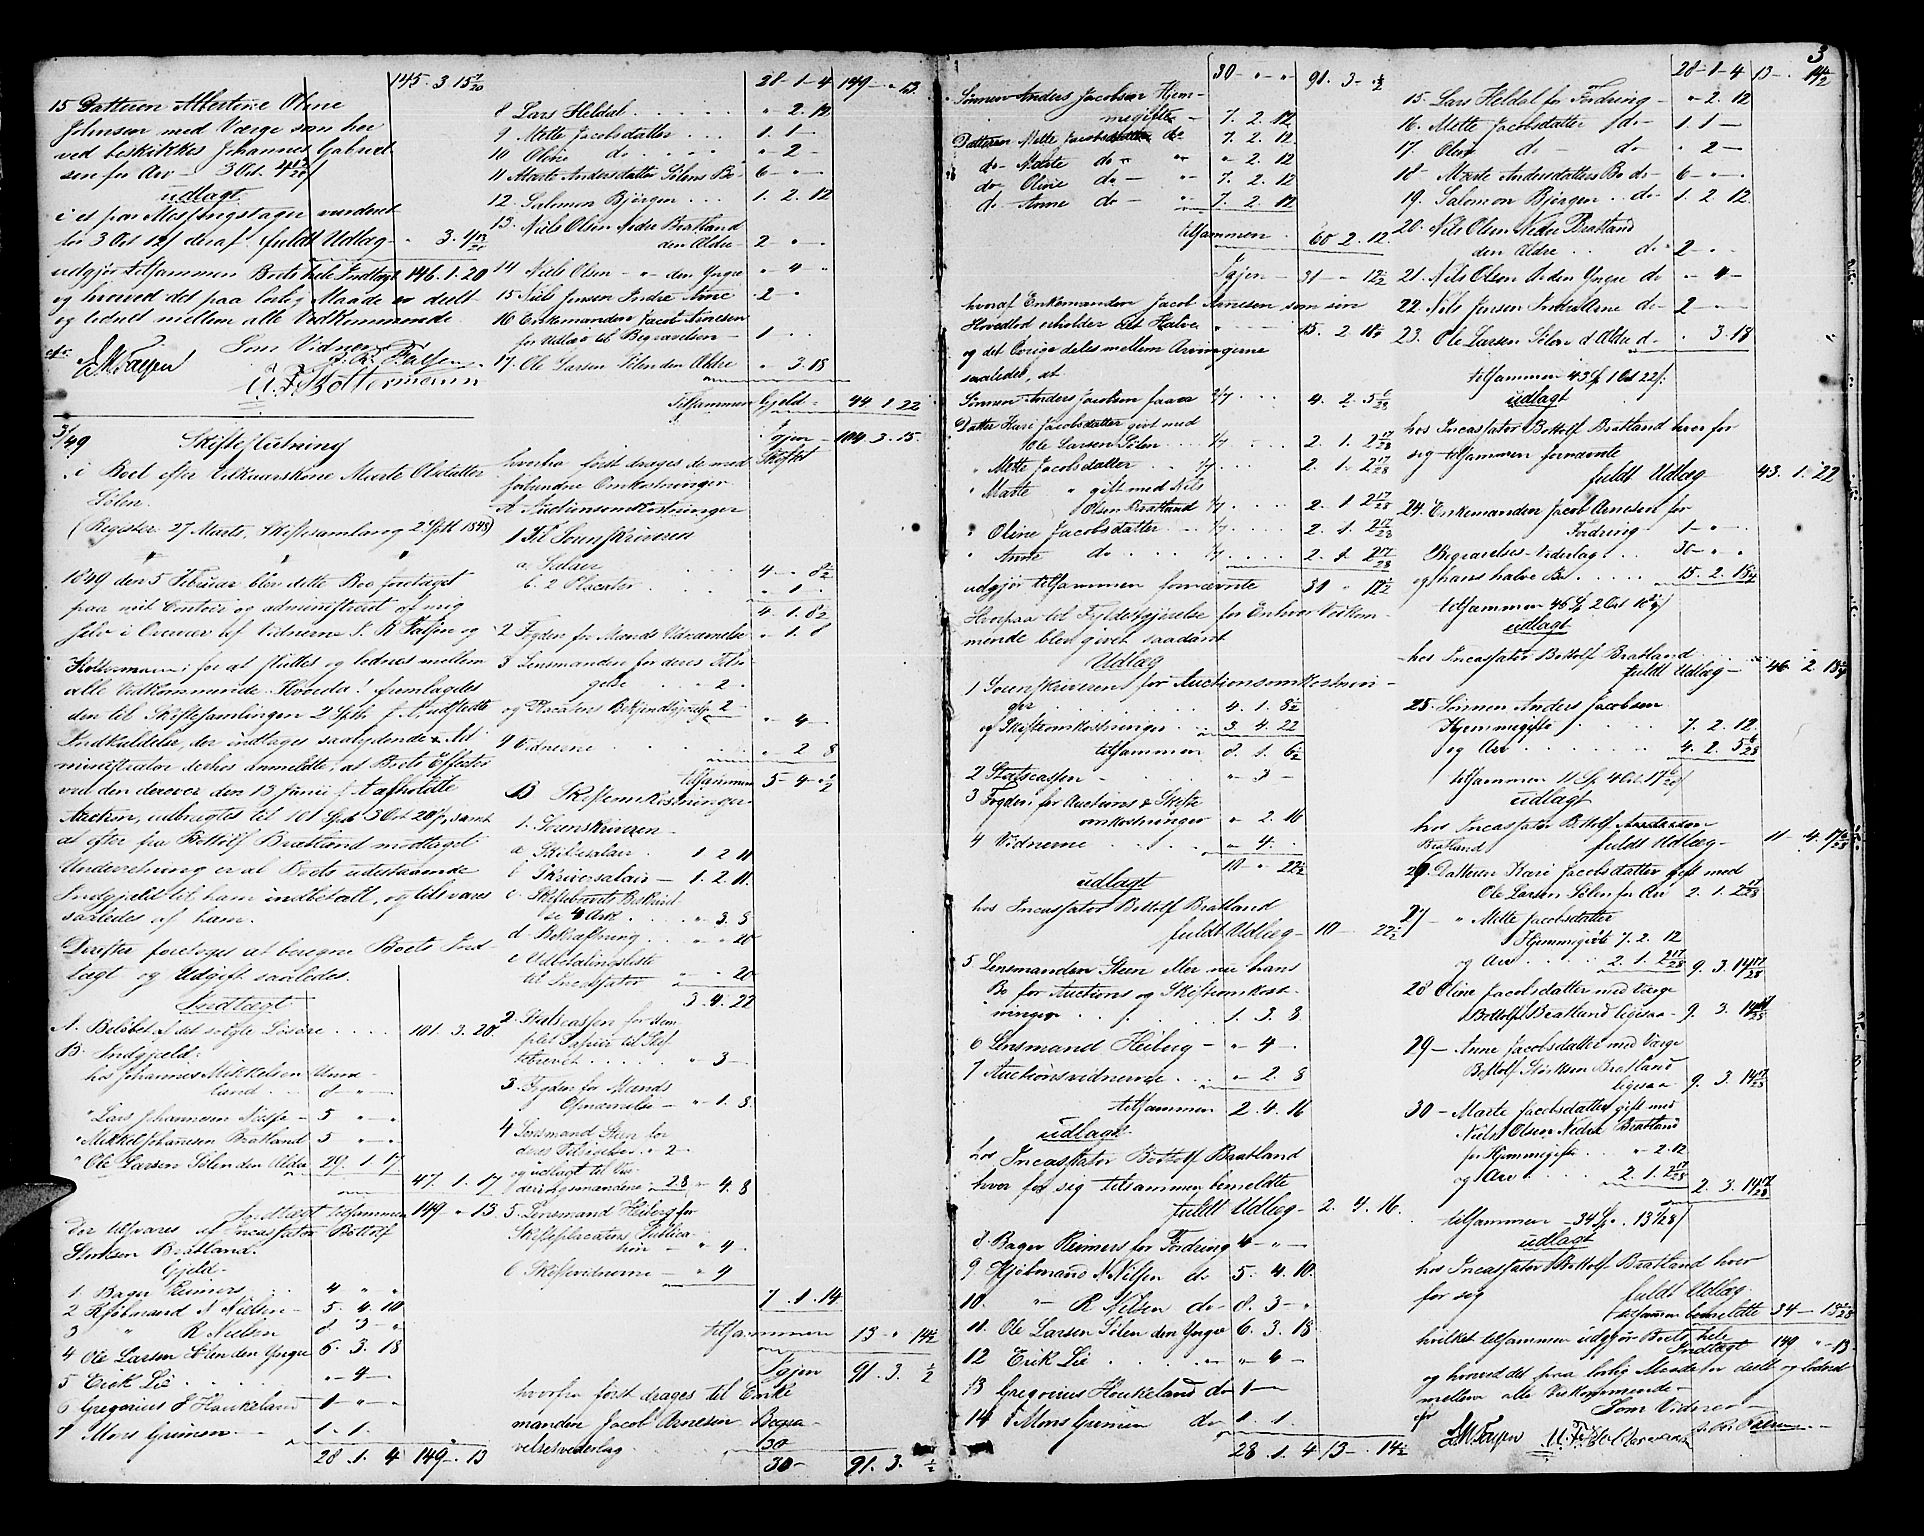 145. 3. 15 7/20
15 Datteren Albertine Oline
Johnsen med Værge som her
ved beskikkes Johannes Gabriel
sen for Arv - 3 Ort
udlagt
i et par Messingstager vurderet
for 3 Ort 12/ deraf fuldt Udlæg
udgjør tilsammen Boets hele Indtægt 146. 1. 20
og hvorved det paa lovlig Maade er deelt
og lodnet mellem alle Vedkommende.
Som Vidner
3/49
Skifteslutning
i Boet efter Vilkaarskone Marte Olsdatter
Sølen.
(Registr. 27 Marts, Skiftesamling 2 Septb 1848)
1849 den 5 Februar blev dette Boe foretaget
paa mit Contoir og administreret af mig
selv i Overvær af Vidnerne S. R. Falsen og
Koltermann for at sluttes og lodnes mellem
alle Vedkommende. Hvorda! fremlagdes
den til Skiftesamlingen 2 Sptb. f. A. udstedte
Indkaldelse, der indtages saalydende. Ad
ministrator derhos anmeldte, at Boets Effecter
ved den derover den 13 Juni f. A. afholdte
Auction, udbragtes til 101 Spd 3 Ort 20 /, samt
at efter fra Bottolf Bratland modtaget
Underretning er al Boets udestaaende
Indgjeld til ham indbetalt, og tilsvares
saaledes af ham.
Derefter foretoges at beregne Boets Ind-
tægt og Udgift saaledes.
Indtægt
A. Beløbet af det solgte Løsøre . . . . 101. 3. 20.
B. Indgjeld:
hos Johannes Mikkelsen Unne
land . . 8 " "
" Lars Johannesen Nesse - 5 " "
" Mikkel Johannesen Bratland 5 " "
" Ole Larsen Sølen den Ældre 29. 1. 17
47. 1. 17
Indtægt tilsammen 149 " 13
der tilsvares af Incassator Bottolf
Størksen Bratland.
Gjeld.
1. Bager Reimers . . 4 " "
2 Kjøbmand N Nielsen - 5. 4. 10
3 " R Nielsen 8 3 -
4 Ole Larsen Sølen den Yngre 6. 3. 18
5 Erick Lie . . . . " 4 -
6 Gregorius J Haukeland 1 - " -
7 Mons Grimen - 1. 1.
28. 1. 4 149 - . 13
28 - 1 - 4 149 - " 13.
8 Lars Heldal . . . . . " 2. 12
9 Mette Jacobsdatter . . . 1. 1 -
10 Oline do . . . . " 2 -
11 Marte Andersdatter Sølens Bo 6 - " -
12 Salomon Bjørgen . . . 1. 2. 12
13. Niels Olsen Nedre Bratland
den Ældre 2 - " -
14 Niels Olsen - " - den Yngre " 4 "
15 Niels Jensen Indre Arne 2 - .
16 Enkemanden Jacob Arnesen
for Udlæg til Begravelsen - 1 . .
17. Ole Larsen Sølen den Ældre " 3. 18
Tilsammen Gjeld - 44. 1. 22
Igjen - 104. 3. 15.
hvorfra først drages de med Skiftet
forbundne Omkostninger
A Auctionsomkostninger
1 Til Sorenskriveren
a. Salair . . . 4 - 8 1/2
b. 2 Placater . . " 1 -
4. 1. 8 1/2
2 Fogden for Mands " 1. 8
3 Lensmanden for deres Tilsi
gelse . . " 2 -
og Placatens Bekjendtgjørelse " 2 - " 4 -
4 Vidnerne . . . . " 2 8
tilsammen 5 - 4 - " 1/2
B Skifteomkostninger
1. Sorenskriveren -
a Skiftesalair . 1 2 11
b Skriversalair - 1. 2. 11.
c. Skiftebrevets Beskrivel
se 4 Ark . . " 3. 8
d. Bekræftning . . " " 20
e Udbetalingsliste
til Incassator " " 20
3. 4. 22
2. Statscassen for stem
plet Papir til Skif
tebrevet . . . " 3 -
3. Fogden for Mands
Opnævnelse - " 1. 8.
4 Lensmand Steen for
deres Tilsigelse . " 2
og udlagt til Vur
deringsmændene " 2. 8 " 4. 8
5. Lensmand Heiberg for
Skifteplacatens Publica
tion - " 4 -
6 Skiftevidnerne - " 4
7. 1. 14
tilsammen 13 - " 14 1/2
Igjen 91. 3. 1/2
hvorfra først drages til Enke
manden Jacob Arnesen Begra-
velsesvederlag . . 30 -
30 - 91. 3. 1/2
3
30 - " " 91. 3 - 1/2
Sønnen Anders Jacobsen Hjem-
megifte - 7. 2. 12
Datteren Mette Jacobsdatter do 7. 2. 12.
do - Marte do - " " 2. 12
do Oline do - " 7. 2. 12
do - Anne do - " 7. 2. 12
tilsammen . 60 2. 12.
Igjen - 31 - " 12 1/2
hvoraf Enkemanden Jacob Arnesen som sin
Hovedlod erholder det Halve . . . 15. 2
og det Øvrige deles mellem Arvingerne
saaledes, at
Sønnen Anders Jacobsen faaer 2/7 . . . 4. 2. 5 6/28
Datter Kari Jacobsdatter givt med
Ole Larsen Sølen . . 1/7 . . . 2. 1. 2 17/28
" Mette Jacobsdatter . . 1/7 . . . 2. 1. 2 17/28
" Marte " gift med Nils
Olsen Bratland 1/7 . . . 2. 1 2 17/28
" Oline Jacobsdatter . . 1/7 . . . 2. 1. 2 17/28
" Anne do . . . 1/7 . . . 2. 1. 2 17/28
udgjør tilsammen fornævnte 31 " 12 1/2
Hvorpaa til Fyldestgjørelse for Enhver Vedkom-
mende blev givet saadant
Udlæg
1 Sorenskriveren for Auctionsomkostnin-
ger . . . . . 4. 1. 8 1/2
og Skifteomkostninger . . 3. 4. 22
tilsammen 8. 1. 6 1/2
2 Statscassen - . . . . " 3 -
3 Fogden, for Auctions & Skifte
omkostninger " 2. 16
4 Vidnerne . . . . " 4. .
10 " 22 1/2
udlagt
hos Incassator Bottolf Bratland
fuldt Udlæg - 10 - 22 1/2
5 Lensmanden Steen eller nu hans
Bo for Auctions og Skifteomkost-
ninger . . . . 1. 3. 8
6 Lensmand Heiberg - " 4 -
7 Auctionsvidnerne . . " 2. 8
tilsammen 2. 4. 16
udlagt
hos Incassator Bottolf Bratland
hver for sig tilsammen bemeldte
fuldt Udlæg - 2. 4. 16.
8. Bager Reimers for Fordring 4 - " -
9. Kjøbmand N Nilsen do 5. 4. 10.
10. " R Nilsen do - 8. 3 - "
11. Ole Larsen Sølen den Yngre 6. 3. 18
12 Erik Lie . . . . " " 4 -
13 Gregorius Haukeland do 1 -
14 Mons Grimen do 1. 1.
28. 1. 4 13 - . 14 1/2
28 - 1 - 4 13 - . 14 1/2
15. Lars Heldal for Fordring - " 2. 12
16. Mette Jacobsdatter do - 1. 1 -
17 Oline do - do - " 2 -
18 Marte Andersdatters Bo do - 6 - " -
19. Salomon Bjørgen . . do - 1. 2 12
20. Nils Olsen Nedre Bratland
den Ældre . . do 2 - "
21. Nils Olsen den Yngre do " 4 -
22. Nils Jensen Indre Arne do - 2 -
23. Ole Larsen Sølen d Ældre do - . 3. 18
tilsammen 43 Sp 1 Ort 22 /:
udlagt
hos Incassator Bottolf Bratland hver for
sig tilsammen fornævnte
fuldt Udlæg 43. 1. 22
24. Enkemanden Jacob Arnesen for
Fordring 1 - " -
Begravelses Vederlag . . 30 - " "
og hans halve Bo . . . . 15. 2.
tilsammen 46 Sp 2 Ort
udlagt
hos Incassator Bottolf Bratland . . .
fuldt Udlæg - 46. 2.
25. Sønnen Anders Jacobsen
Hjemmegifte . . . . 7. 2. 12.
og Arv . . . . . . 4. 2. 5 6/28
tilsammen 11 Sp. 4 Ort. 17 6/28 /
udlagt
hos Incassator Bottolf
Bratland fuldt Udlæg - 11 - 4. 17 6/28
26. Datteren Kari Jacobsdatter gift med
Ole Larsen Sølen for Arv 2. 1. 2 17/28
27 - " Mette Jacobsdatter
Hjemmegifte 7. 2. 12
og Arv . . . . 2. 1. 2 17/28 9. 3. 14 17/28
28 Oline Jacobsdatter med Værge
Bottolf Bratland ligesaa - 9. 3. 14 17/28
29 - Anne Jacobsdatter med Værge
Bottolf Størksen Bratland
ligesaa - 9. 3. 14 17/28
30 - Marte Jacobsdatter gift med
Niels Olsen Nedre Bratland
for Hjemmegifte . . " 2. 12
og Arv . . . . 2. 1. 2 17/28
2. 3. 14 17/28
tilsammen - 34 Sp. . 13 1/28 /
udlagt
hos Incassator Bottolf Bratland hver
for sig fuldt Udlæg
tilsammen bemeldte 34 - 13 1/28
hvilket tilsammen udgjør Boets hele
Indtægt 149 " 13 -
og hvorved det paa lovlig Maade er deelt og lodnet
mellem alle Vedkommende -
Som Vidner -